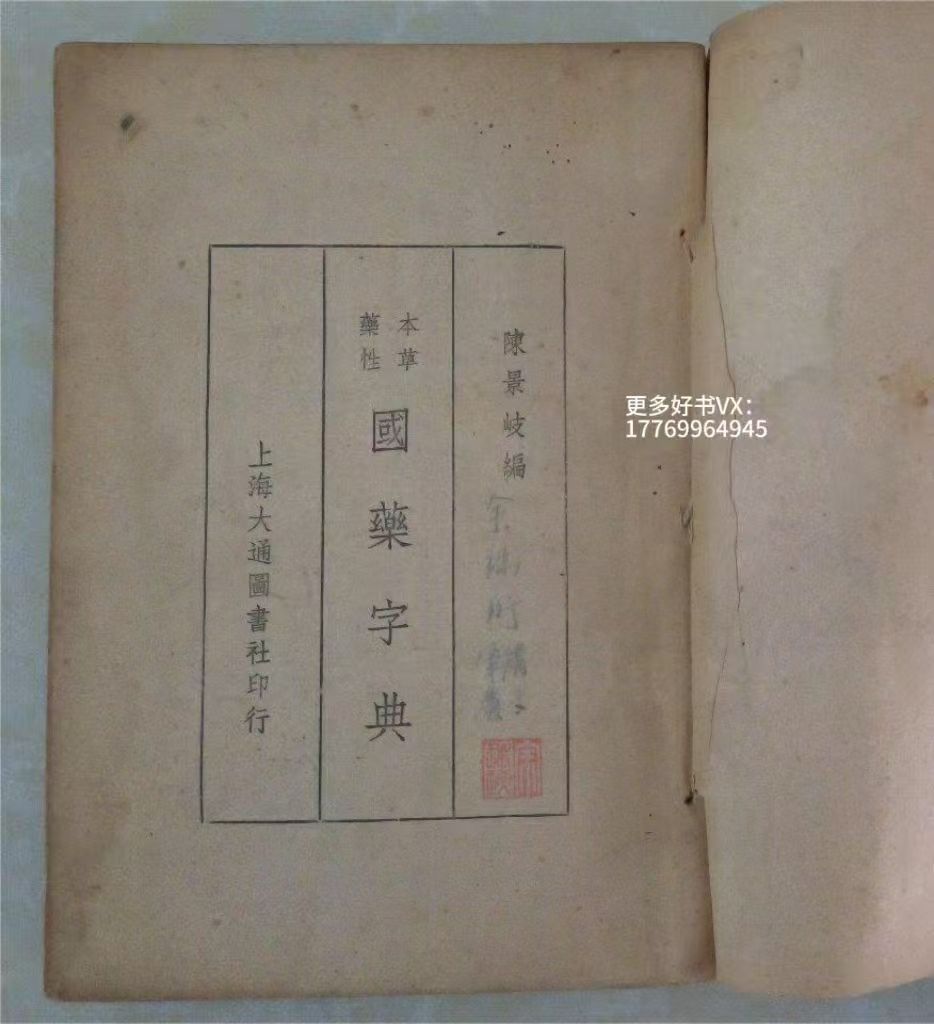 陳景岐編
本草
藥性
國藥字典
上海大通圖書社印行
更多好书VX：
17769964945